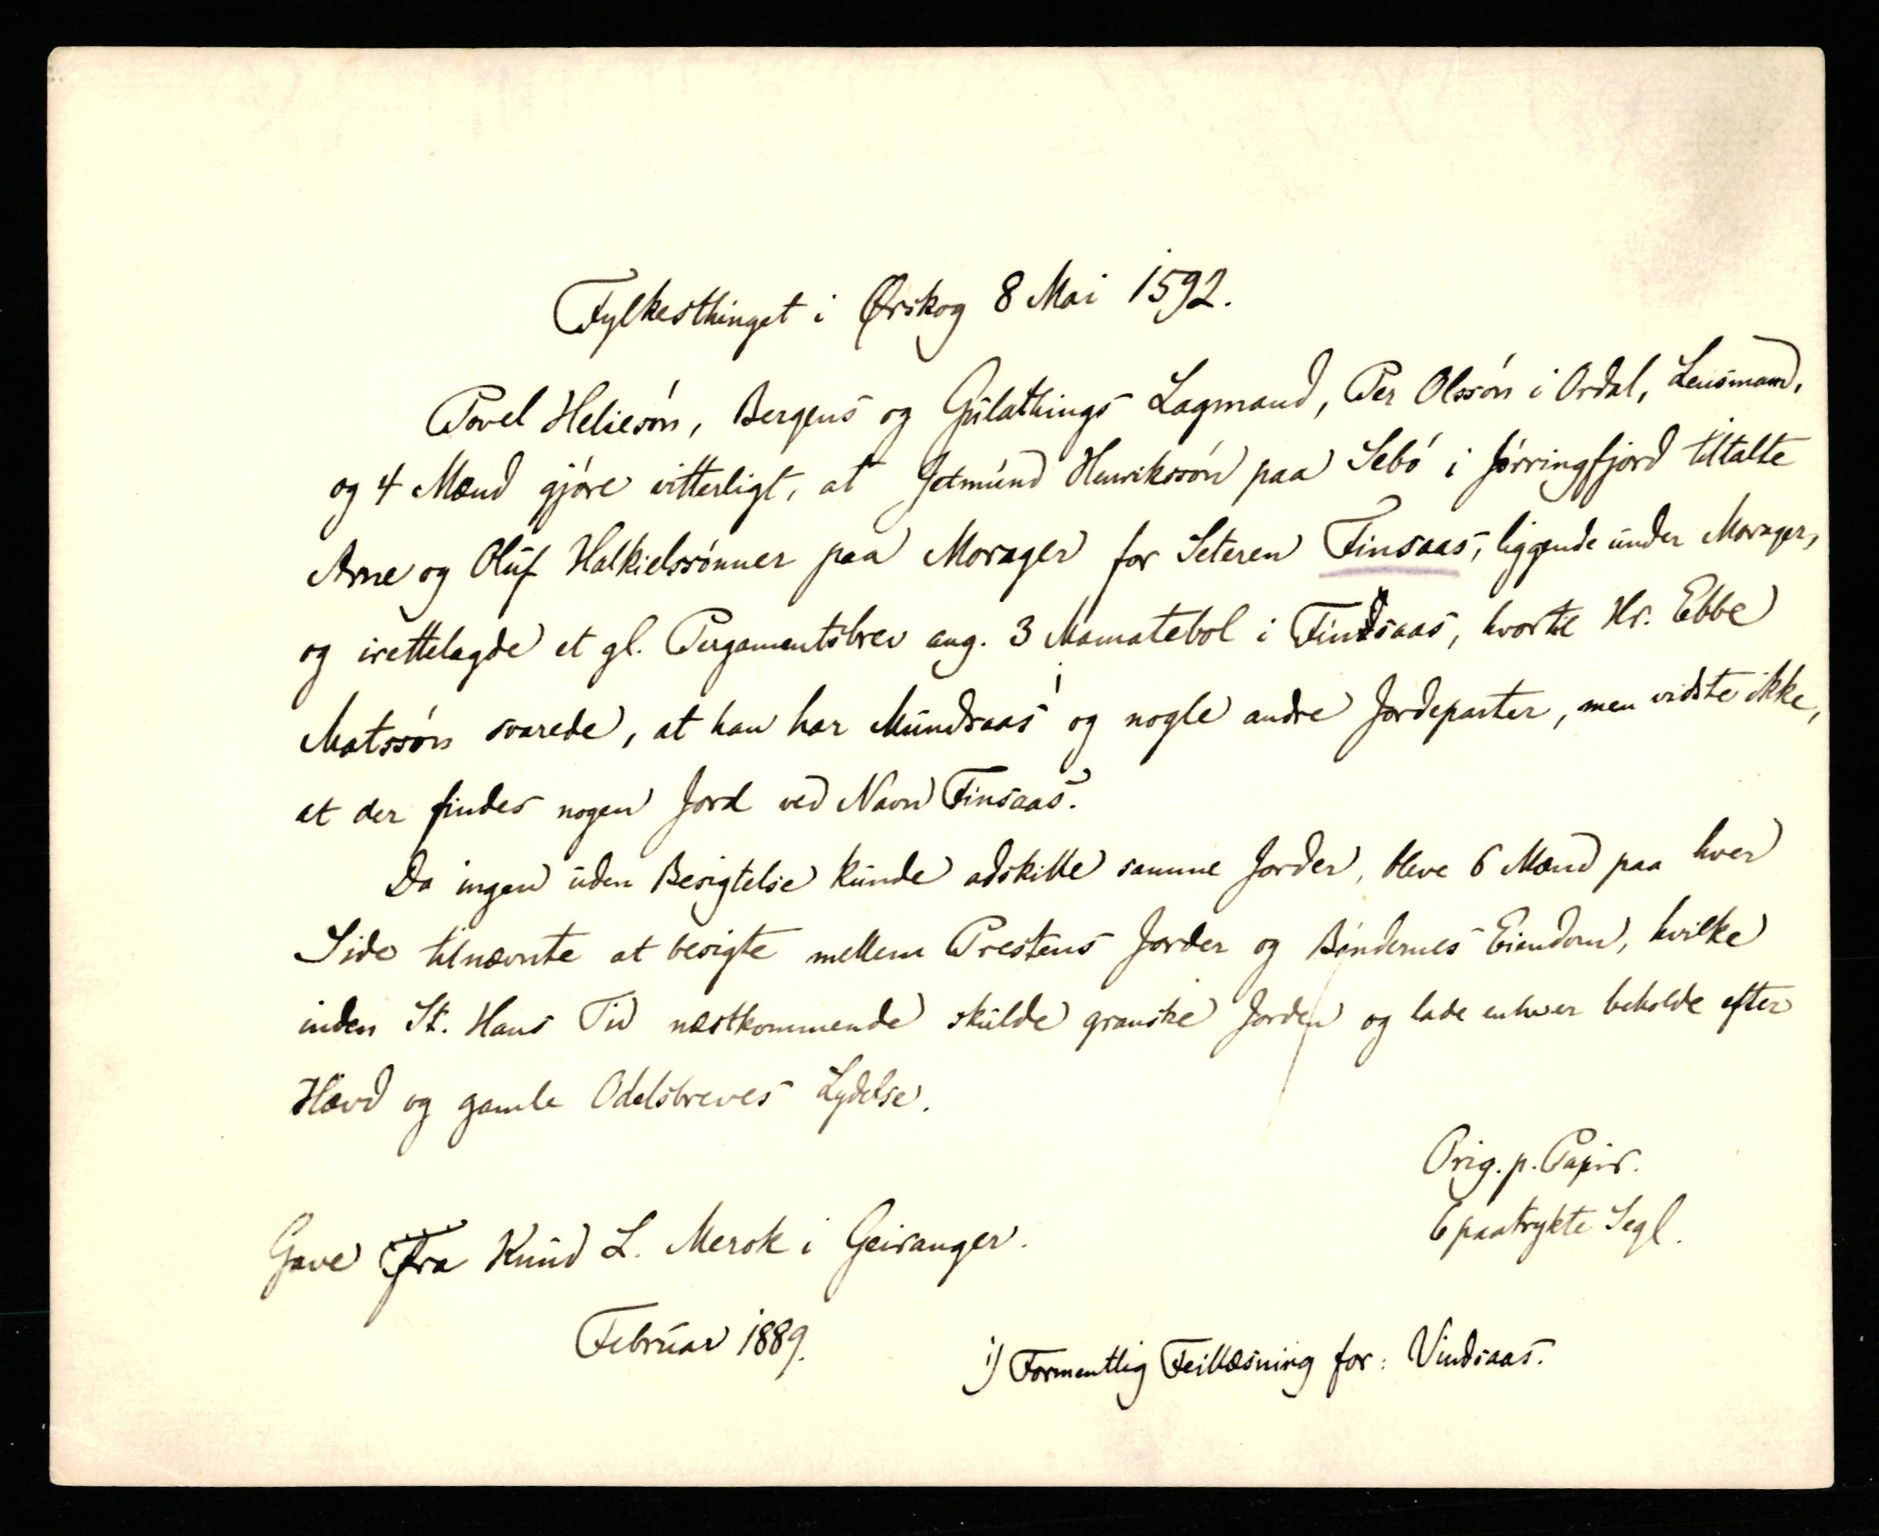 Fylkesthinget i Ørskog 8 Mai 1592.
Povel Heliesón, Bergens og Gulathings Lagmand, Per Olssón i Ordal, Lensmand,
og 4 Mænd gjóre vitterligt, at Jetmund Henrikssón paa Sebó i Jórringfjord tiltalte
Arne og Oluf Halkielssónner paa Morager for Seteren Finsaas, liggende under Morager,
og irettelagde et gl. Pergamentsbrev ang. 3 Mamatebol i Findsaas, hvortil Hr. Ebbe
Matssón svarede, at han har Mundsaas¹ og nogle andre Jordeparter, men vidste ikke,
at der findes nogen Jord ved Navn Finsaas.
Da ingen uden Besigtelse kunde adskille samme Jorder, bleve 6 Mænd paa hver
Side tilnævnte at besigte mellem Prestens Jorder og Bóndernes Eiendom, hvilke
inden St. Hans Tid næstkommende skulde granske Jorden og lade enhver beholde efter
Hævd og gamle Odelsbreves Lydelse.
Orig. p. Papir.
6 paatrykte Segl.
Gave fra Knud L. Merok i Geiranger.
Februar 1889.
1) Formentlig Feillæsning for: Vindsaas.